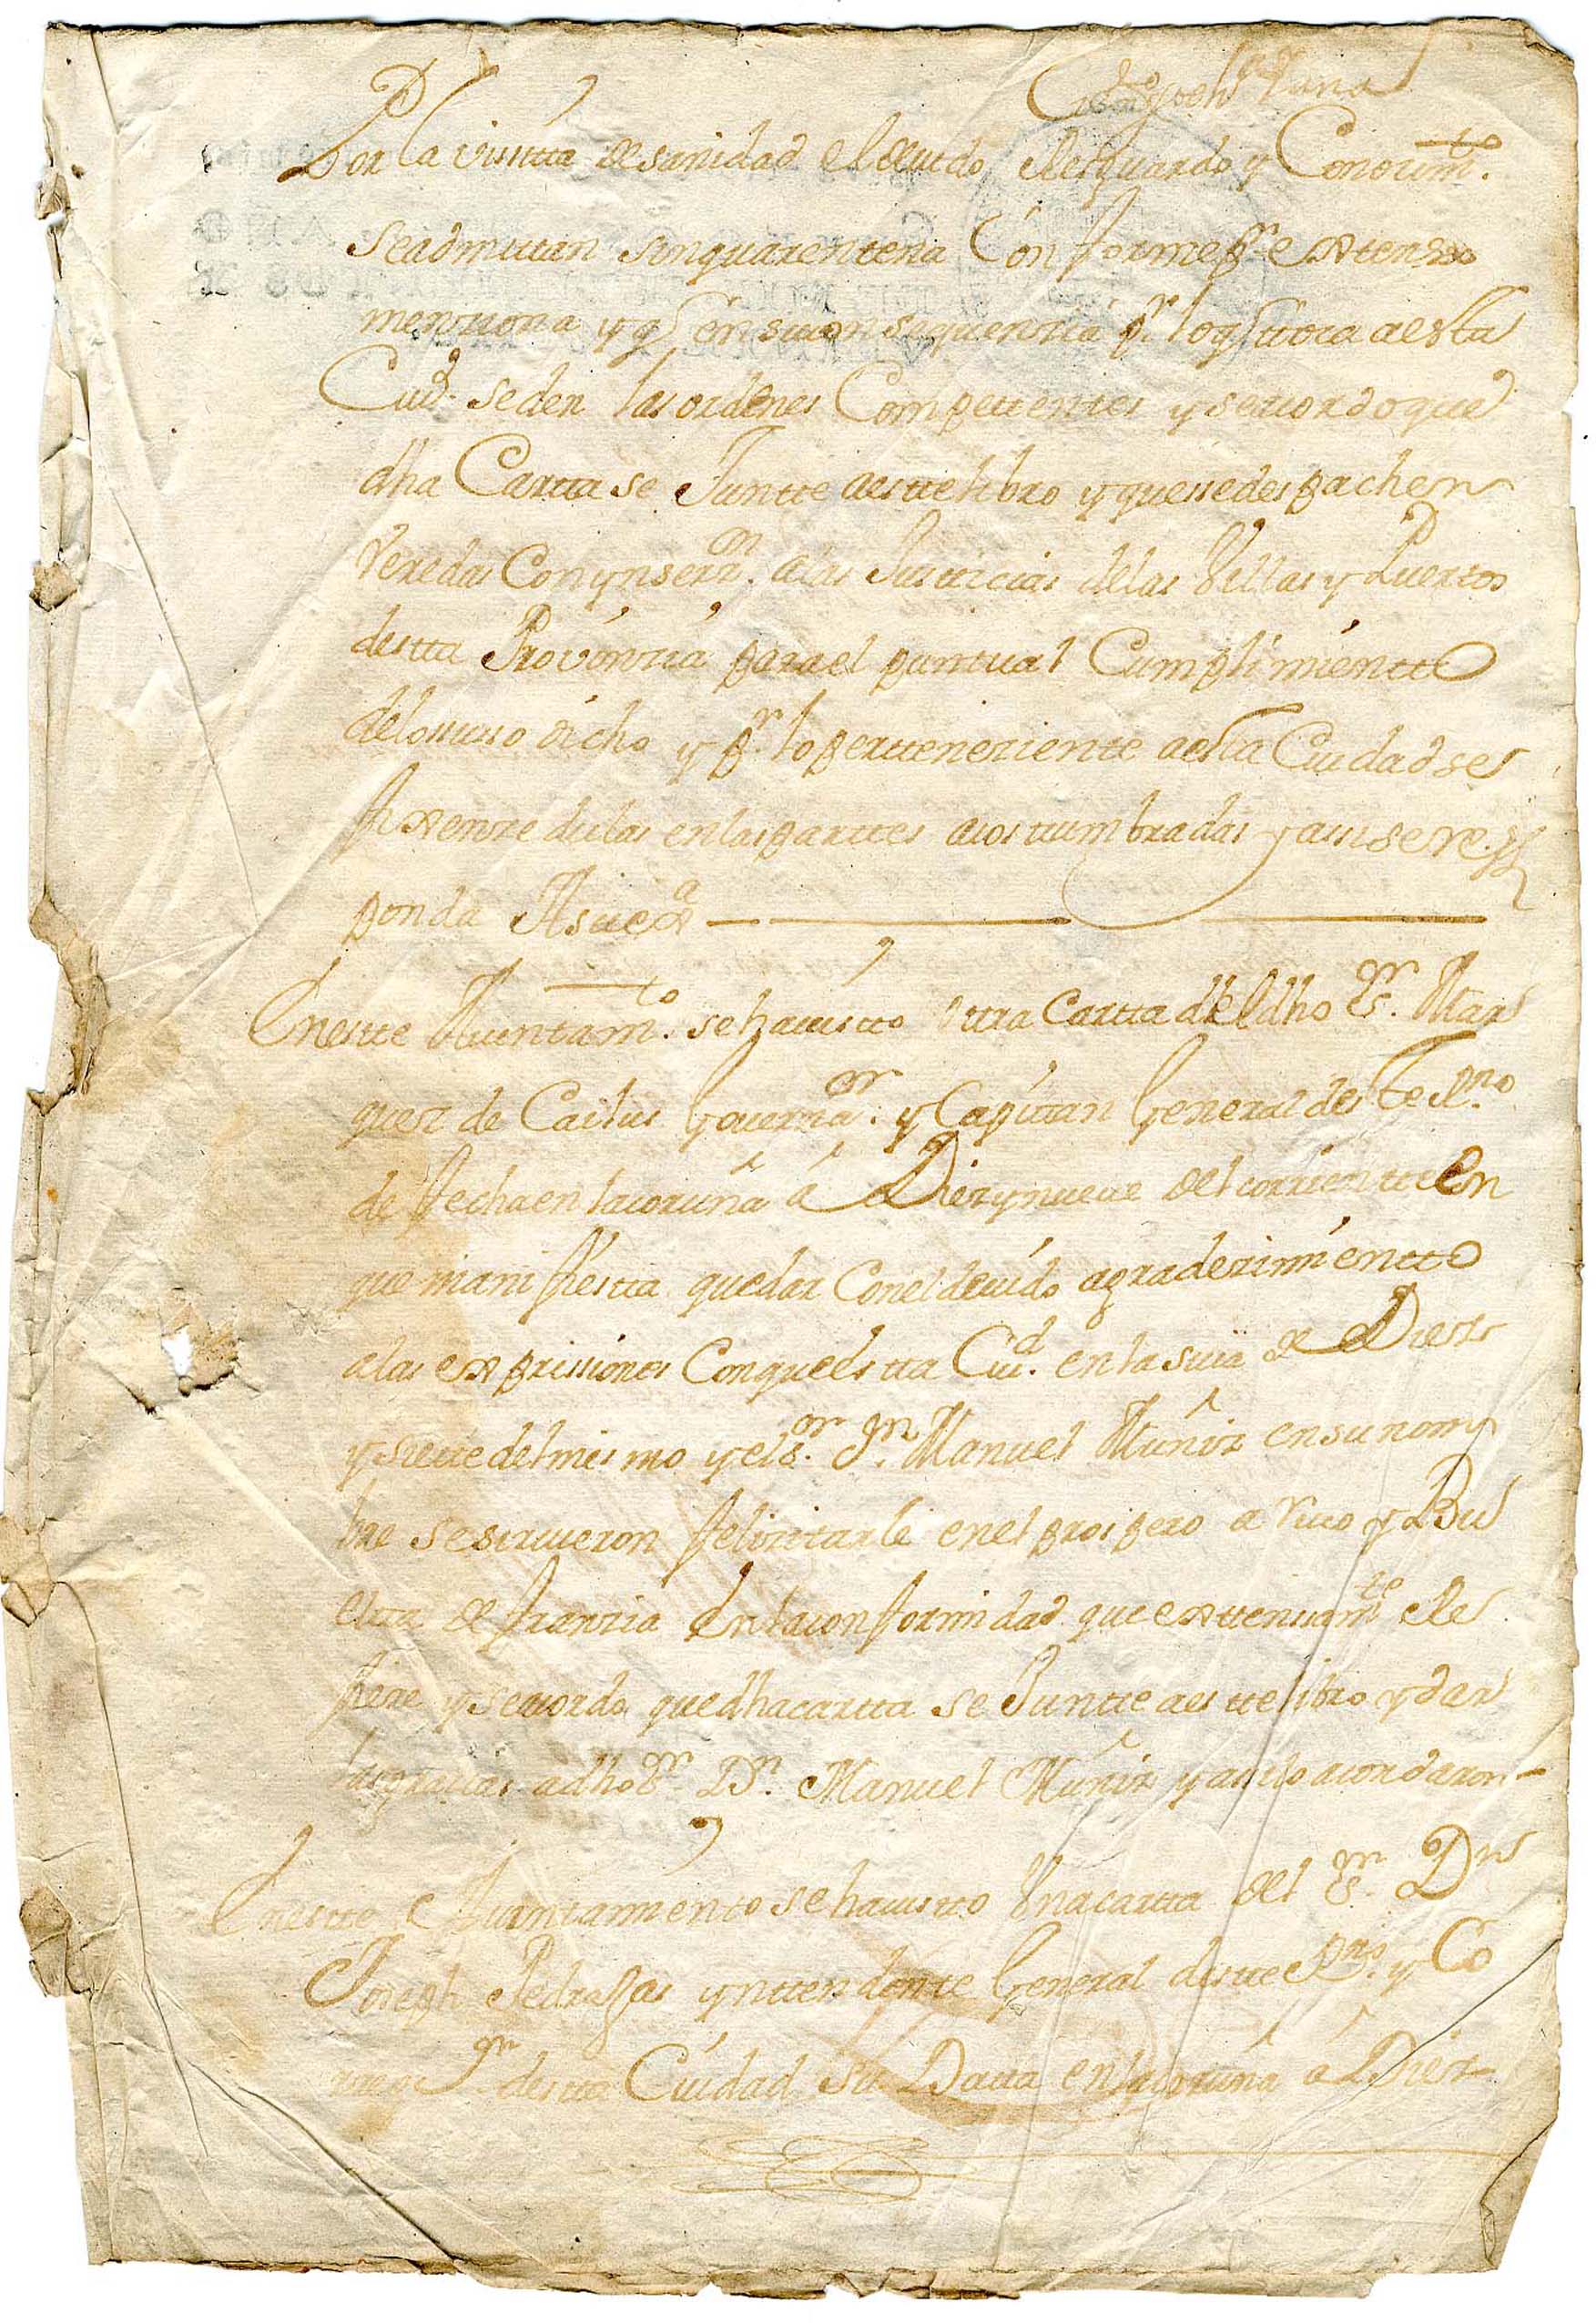 Por la visitta de sanidad el deuido Resguardo y Conocim.to
se admittan sin quarentena Conforme p.r extenso
menziona y q.e en su consequenzia p.r lo q.e toca a esta
Ciud.d se den las ordenes Competentes y se acordo que
dha Cartta se Juntte a estte libro y que se despachen
Veredas Con ynserz.on a las Justicias de las Villas y Puertos
destta Provinzia para el puntual Cumplimientto
de lo suso dicho y p.r lo pertteneziente a esta Ciudad se
fixen zedulas en las parttes acostumbradas y assi se res
ponda
En este Aiuntam.to se ha uistto ottra Cartta del dho S.r Mar
ques de Cailus Gouernad.or y Capitan General deste R.no
de fecha en la coruña á Diez y nueue del corrientte En
que manifiestta quedar Con el deuido agradezimientto
a las expressiones Con que estta Ciu.d en la suia de Diez
y siette del mismo y el S.or D.n Manuel Muñiz en su nom
bre se siruieron felizitarle en el prospero arriuo y Bu
eltta de franzia En la conformidad que exttensam.te Re
fiere y se acordo que dha cartta se Juntte a estte libro y dar
las gracias a dho S.r D.n Manuel Muñiz y assi lo acordaron
En estte Aiuntamiento se ha uistto Vna cartta del S.r D.n
Joseph Pedrajas ynttendente General de estte R.no y Co
rreg.or destta Ciudad su Datta en la coruña á Diez